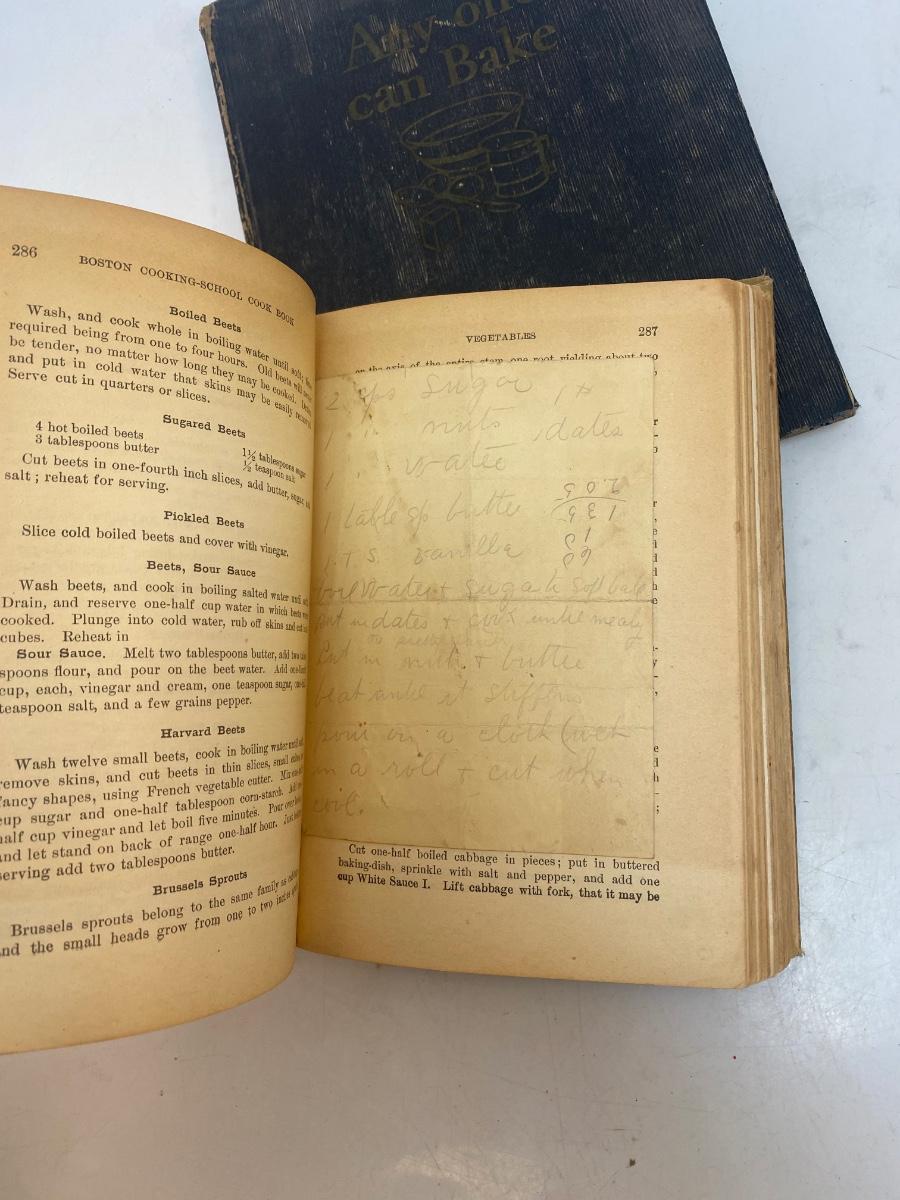 Any one
can Bake
286
BOSTON COOKING-SCHOOL COOK BOOK
Boiled Beets
Wash, and cook whole in boiling water until soft; time
required being from one to four hours. Old beets will never
be tender, no matter how long they may be cooked. Drain
and put in cold water that skins may be easily removed.
Serve cut in quarters or slices.
Sugared Beets
4 hot boiled beets
3 tablespoons butter
1½ tablespoons sugar
½ teaspoon salt
Cut beets in one-fourth inch slices, add butter, sugar, and
salt; reheat for serving.
Pickled Beets
Slice cold boiled beets and cover with vinegar.
Beets, Sour Sauce
Wash beets, and cook in boiling salted water until soft.
Drain, and reserve one-half cup water in which beets were
cooked. Plunge into cold water, rub off skins and cut in
cubes. Reheat in
Sour Sauce. Melt two tablespoons butter, add two
spoons flour, and pour on the beet water. Add
cup, each, vinegar and cream, one teaspoon sugar,
teaspoon salt, and a few grains pepper.
Harvard Beets
Wash twelve small beets, cook in boiling water until soft,
remove skins, and cut beets in thin slices, small cubes, or
fancy shapes, using French vegetable cutter. Mix
cup sugar and one-half tablespoon corn-starch. Add
half cup vinegar and let boil five minutes. Pour over
and let stand on back of range one-half hour. Just
serving add two tablespoons butter.
Brussels Sprouts
Brussels sprouts belong to the same family as
and the small heads grow from one to two inches
VEGETABLES
287
on the axis of the entire stem, one root yielding about two
2 cps Sugar
1 " nuts , dates
1 " water
1 table sp butter
1 T S vanilla
boil water & sugar to soft ball
put in dates & cook until mealy
Put in nuts & butter
beat until it stiffens
pour on a cloth (wet
in a roll & cut when
cool.
205
135
10
60
Cut one-half boiled cabbage in pieces; put in buttered
baking-dish, sprinkle with salt and pepper, and add one
cup White Sauce I. Lift cabbage with fork, that it may be